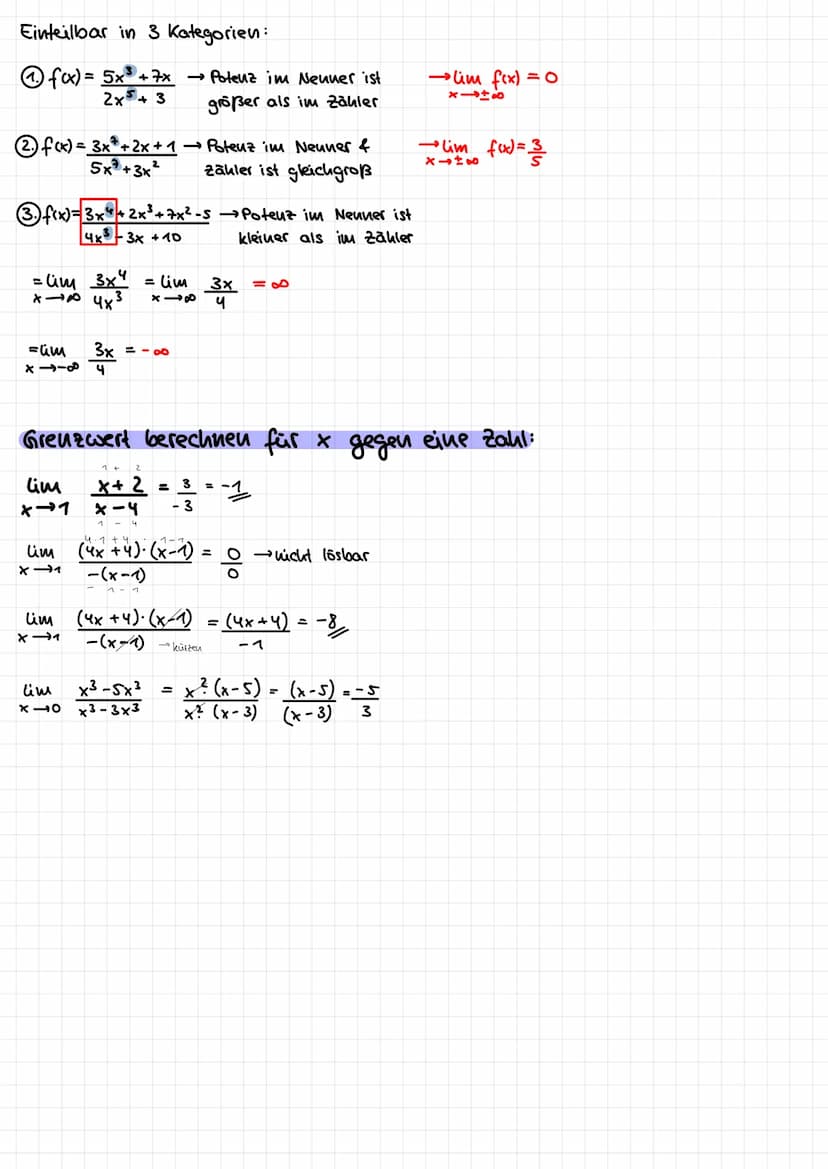 Einteilbar in 3 Kategorien:
① f(x) = (5x³ + 7x)/(2x⁵ + 3) → Potenz im Nenner ist größer als im Zähler → lim x→±∞ f(x) = 0
② f(x) = (3x⁷ + 2x + 1)/(5x⁷ + 3x²) → Potenz im Nenner & Zähler ist gleichgroß → lim x→±∞ f(x) = 3/5
③ f(x) = (3x⁴ + 2x³ + 7x² - 5)/(4x³ - 3x + 10) → Potenz im Nenner ist kleiner als im Zähler
= lim x→∞ 3x⁴/4x³ = lim x→∞ 3x/4 = ∞
= lim x→-∞ 3x/4 = -∞
Grenzwert berechnen für x gegen eine Zahl:
1 + 2
lim x→1 (x + 2)/(x - 4) = 3/-3 = -1
1 - 4
4·1 + 4 1 - 1
lim x→1 (4x + 4)·(x - 1)/-(x - 1) = 0/0 → nicht lösbar
- 1 - 1
lim x→1 (4x + 4)·(x - 1)/-(x - 1) → kürzen = (4x + 4)/-1 = -8
lim x→0 (x³ - 5x²)/(x³ - 3x²) = x²·(x - 5)/x²·(x - 3) = (x - 5)/(x - 3) = -5/3